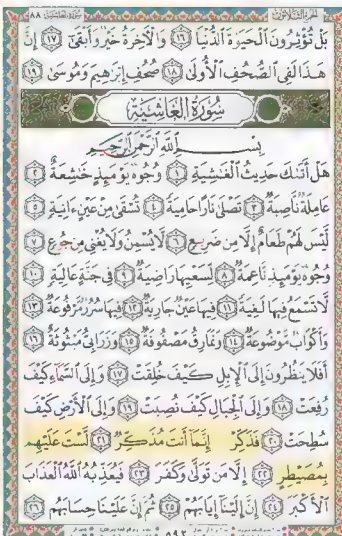 الجزء الثلاثون سورة الغاشية ٨٨
بَلْ تُؤْثِرُونَ الْحَيَوٰةَ الدُّنْيَا ١٦ وَالْآخِرَةُ خَيْرٌ وَأَبْقَىٰ ١٧ إِنَّ
هَـٰذَا لَفِي الصُّحُفِ الْأُولَىٰ ١٨ صُحُفِ إِبْرَٰهِيمَ وَمُوسَىٰ ١٩
سُورَةُ الْغَاشِيَةِ
بِسْمِ اللَّهِ الرَّحْمَـٰنِ الرَّحِيمِ
هَلْ أَتَىٰكَ حَدِيثُ الْغَـٰشِيَةِ ١ وُجُوهٌ يَوْمَئِذٍ خَـٰشِعَةٌ ٢
عَامِلَةٌ نَّاصِبَةٌ ٣ تَصْلَىٰ نَارًا حَامِيَةً ٤ تُسْقَىٰ مِنْ عَيْنٍ ءَانِيَةٍ ٥
لَّيْسَ لَهُمْ طَعَامٌ إِلَّا مِن ضَرِيعٍ ٦ لَّا يُسْمِنُ وَلَا يُغْنِي مِن جُوعٍ ٧
وُجُوهٌ يَوْمَئِذٍ نَّاعِمَةٌ ٨ لِّسَعْيِهَا رَاضِيَةٌ ٩ فِي جَنَّةٍ عَالِيَةٍ ١٠
لَّا تَسْمَعُ فِيهَا لَـٰغِيَةً ١١ فِيهَا عَيْنٌ جَارِيَةٌ ١٢ فِيهَا سُرُرٌ مَّرْفُوعَةٌ ١٣
وَأَكْوَابٌ مَّوْضُوعَةٌ ١٤ وَنَمَارِقُ مَصْفُوفَةٌ ١٥ وَزَرَابِيُّ مَبْثُوثَةٌ ١٦
أَفَلَا يَنظُرُونَ إِلَى الْإِبِلِ كَيْفَ خُلِقَتْ ١٧ وَإِلَى السَّمَاءِ كَيْفَ
رُفِعَتْ ١٨ وَإِلَى الْجِبَالِ كَيْفَ نُصِبَتْ ١٩ وَإِلَى الْأَرْضِ كَيْفَ
سُطِحَتْ ٢٠ فَذَكِّرْ إِنَّمَا أَنتَ مُذَكِّرٌ ٢١ لَّسْتَ عَلَيْهِم
بِمُصَيْطِرٍ ٢٢ إِلَّا مَن تَوَلَّىٰ وَكَفَرَ ٢٣ فَيُعَذِّبُهُ اللَّهُ الْعَذَابَ
الْأَكْبَرَ ٢٤ إِنَّ إِلَيْنَا إِيَابَهُمْ ٢٥ ثُمَّ إِنَّ عَلَيْنَا حِسَابَهُم ٢٦
٥٩٢